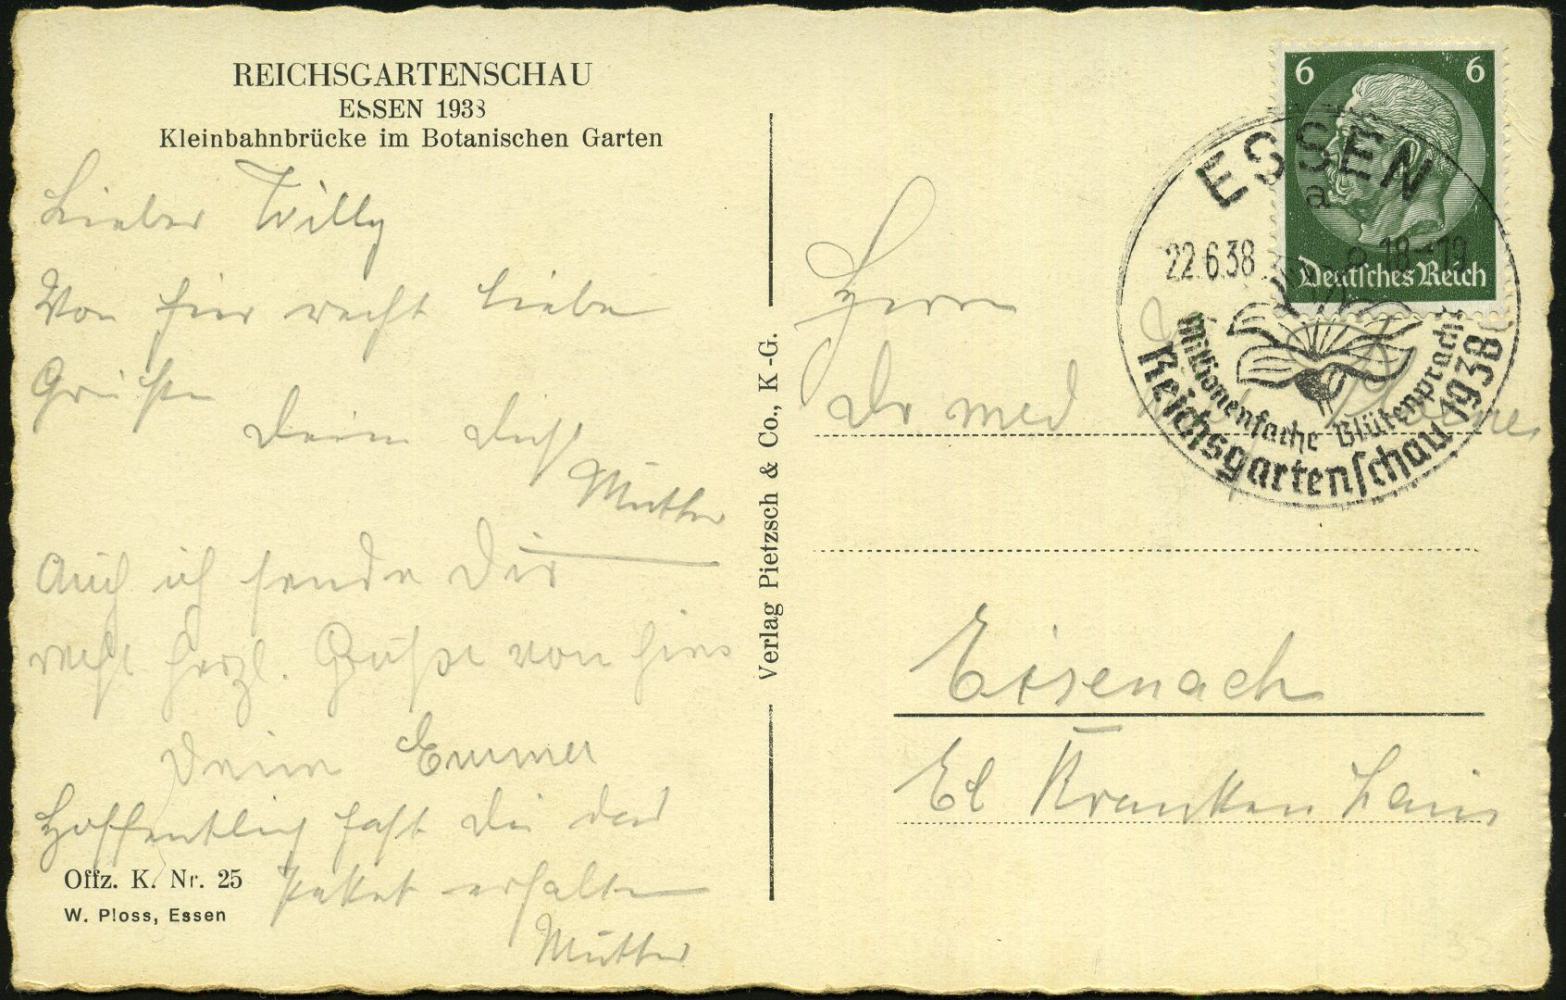 REICHSGARTENSCHAU
ESSEN 1938
Kleinbahnbrücke im Botanischen Garten
Lieber Willy
Von hier recht liebe
Grüße
Deine dich
Mutter
Auch ich sende Dir
recht herzl. Grüße von hier
Deine
Hoffentlich hast du das
Paket erhalten
Mutter
Offz. K. Nr. 25
W. Ploss, Essen
Verlag Pietzsch & Co., K.-G.
6 6
Deutsches Reich
ESSEN
a
22.6.38
18-19
Millionenfache Blütenpracht
Reichsgartenschau 1938
Herrn
Dr med
Eisenach
Kranken Haus